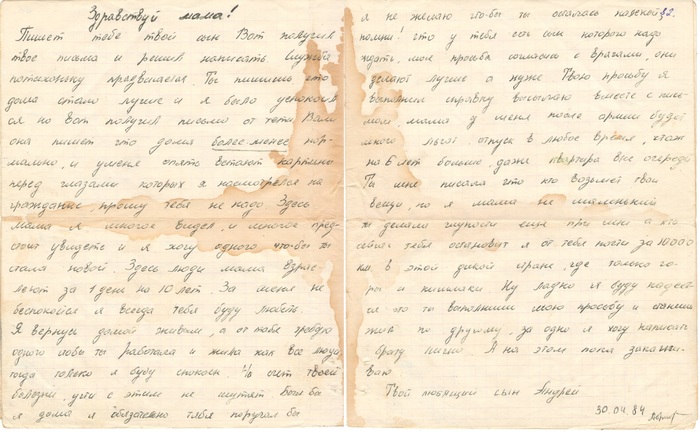 Здравствуй мама!
Пишет тебе твой сын Вот получил
твое письмо и решил написать. Служба
потихоньку продвигается Ты пишешь что
дома стало лучше и я было успокоил
ся но вот получил письмо от тети Вали
она пишет что дома более-менее нор-
мально, и у меня опять встают картины
перед глазами которых я насмотрелся на
гражданке, прошу тебя не надо Здесь
мама я многое видел, и многое пред-
стоит увидеть и я хочу одного что-бы ты
стала новой. Здесь люди мама взрос-
леют за 1 день на 10 лет. За меня не
беспокойся я всегда тебя буду любить.
Я вернусь домой живым, а от тебя требую
одного чтобы ты работала и жила как все люди,
тогда только я буду спокоен. На счет твоей
болезни, учти с этим не шутят Был бы
я дома я обязательно тебя поругал бы
я не желаю что-бы ты осталась калекой, 2.
помни! что у тебя есть сын которого надо
ждать, моя просьба согласись с врачами, они
делают лучше а хуже Твою просьбу я
выполнил справку высылаю вместе с пись-
мом. мама у меня после армии будет
много льгот: отпуск в любое время, стаж
на 6 лет больше, даже квартира вне очереди
Ты мне писала что кто возьмет твои
вещи, но я мама не маленький
ты делала глупости еще при мне а кто
сейчас тебя остановит я от тебя почти за 10000
км. в этой дикой стране, где только го-
ры и кишлаки Ну ладно я буду надеят-
ся что ты выполнишь мою просьбу и станешь
жить по другому, за одно я хочу написать
брату лично А на этом пока заканчи-
ваю
Твой любящий сын Андрей
30.04.84